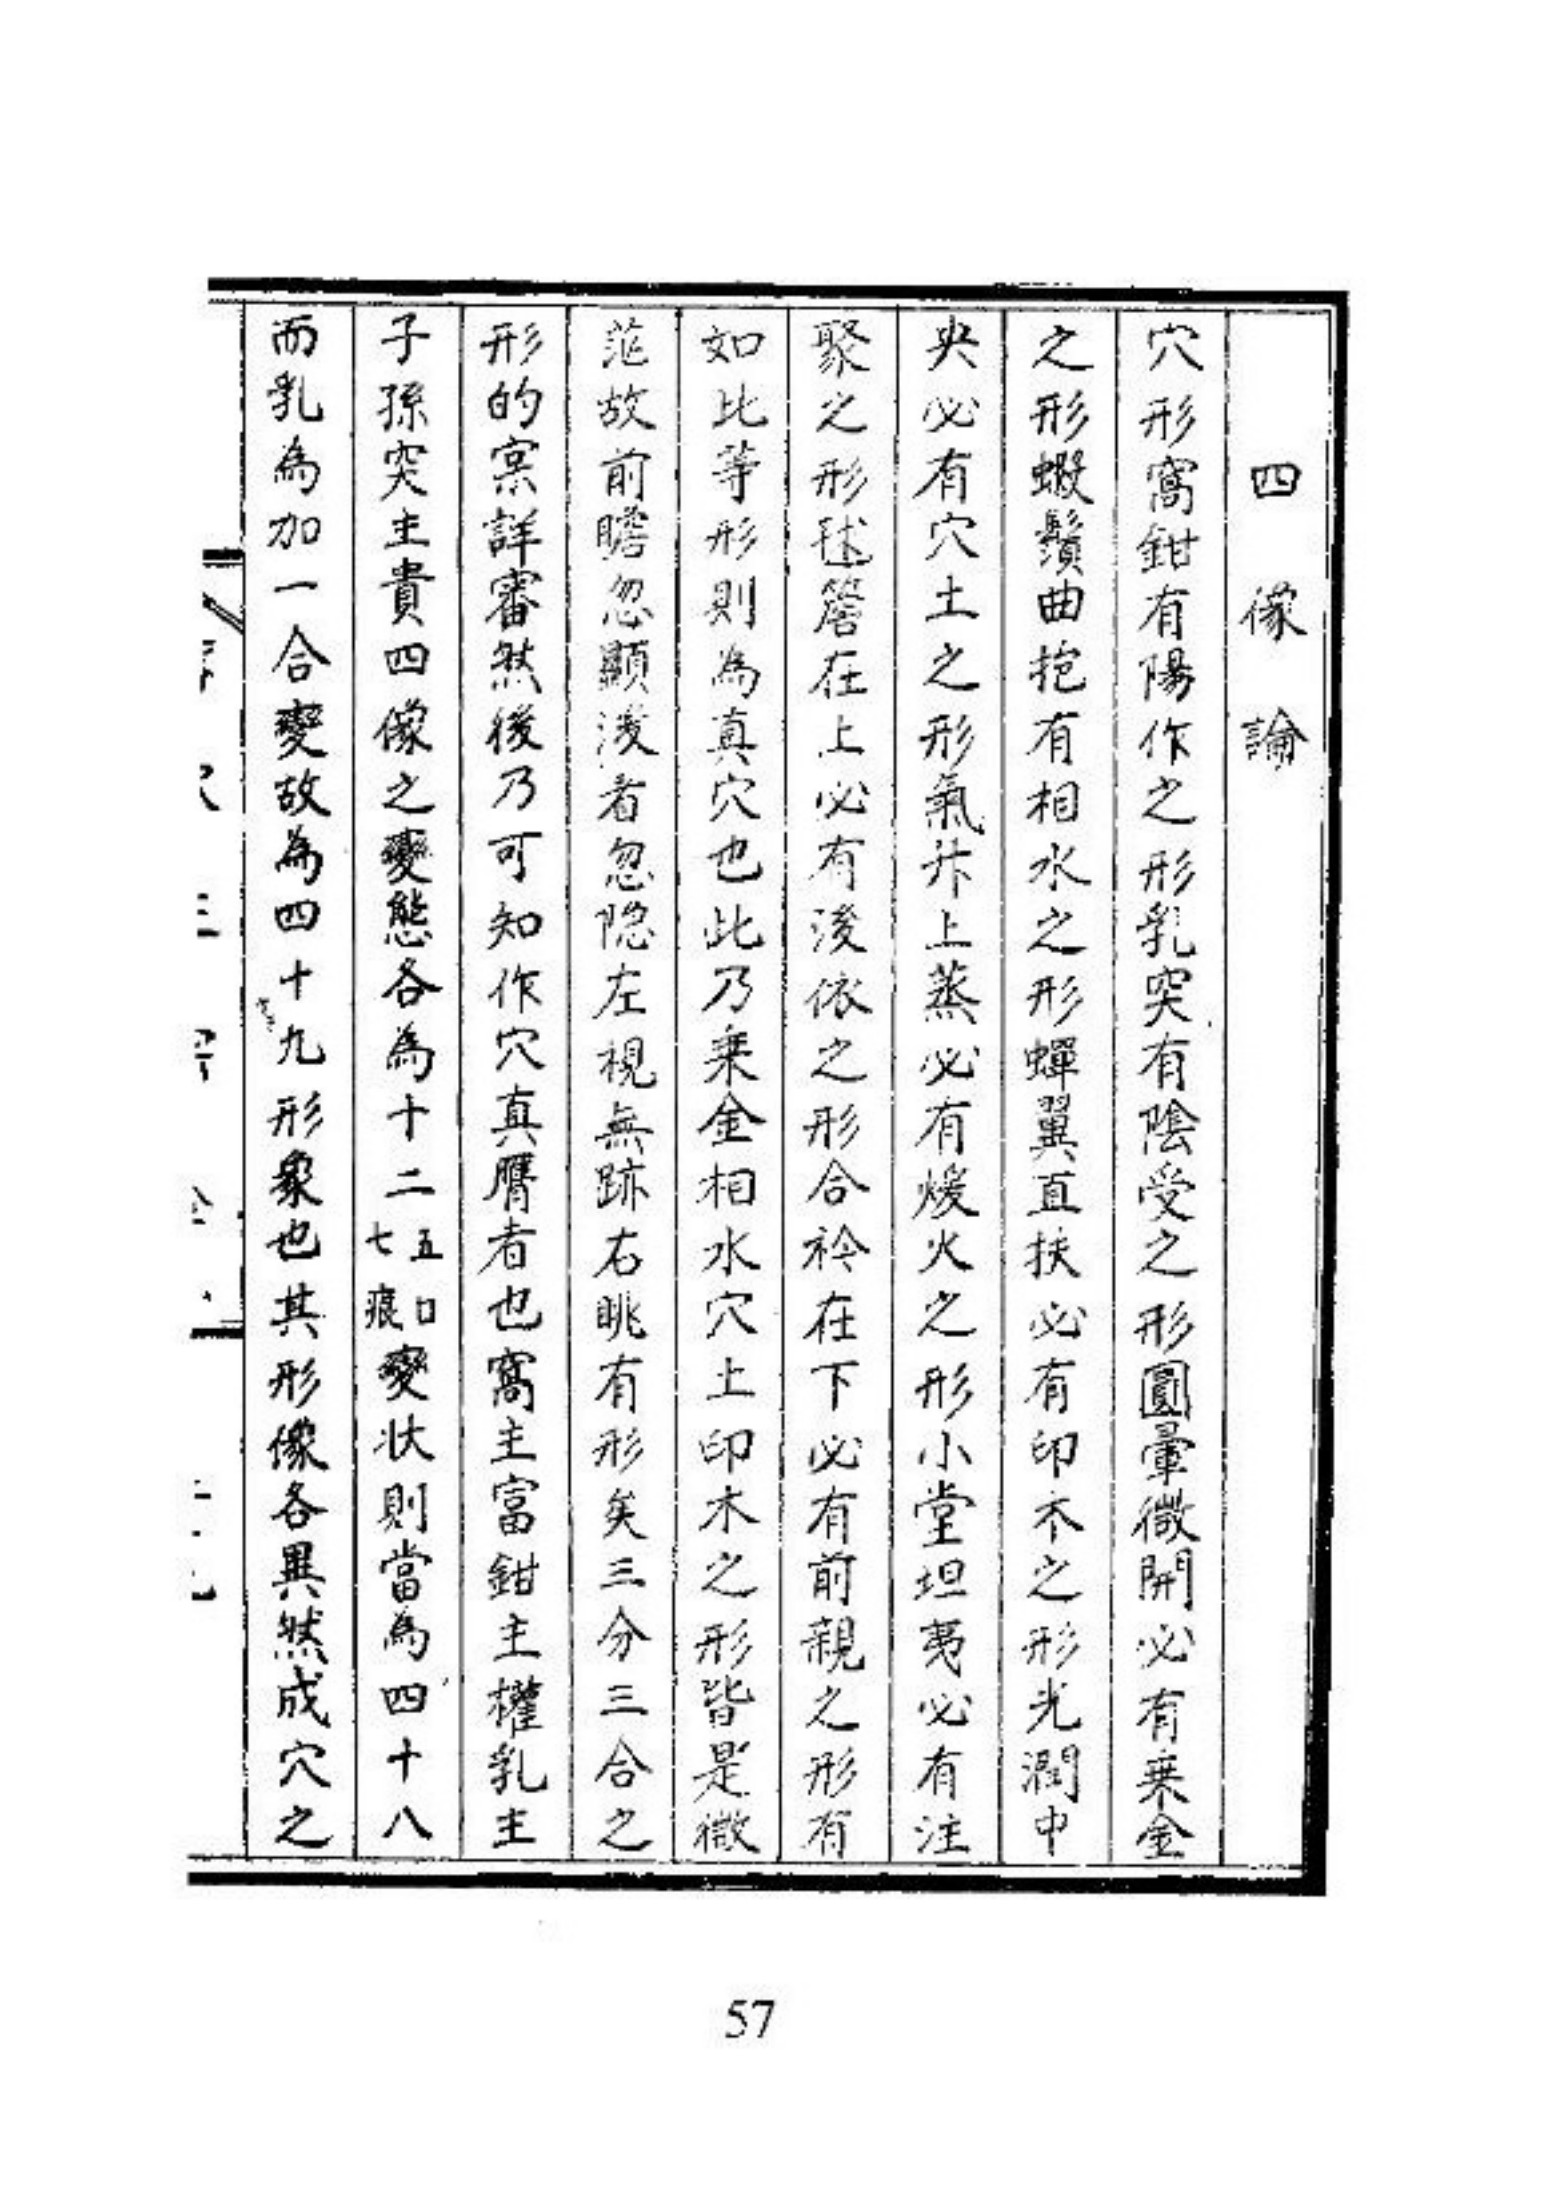 四像論
穴形窩鉗有陽作之形乳突有陰受之形圓暈微開必有乗金
之形蝦鬚曲抱有相水之形蟬翼直扶必有印木之形光潤中
央必有穴土之形氣升上蒸必有煖火之形小堂坦夷必有注
聚之形毬簷在上必有後依之形合衿在下必有前親之形有
如比等形則為真穴也此乃乗金相水穴土印木之形皆是微
茫故前瞻忽顯後看忽隐左視無跡右眺有形矣三分三合之
形的窯詳審然後乃可知作穴真贋者也窩主富鉗主權乳主
子孫突主貴四像之變態各為十二五口七痕變状則當為四十八
而乳為加一合變故為四十九形象也其形像各異然成穴之
57